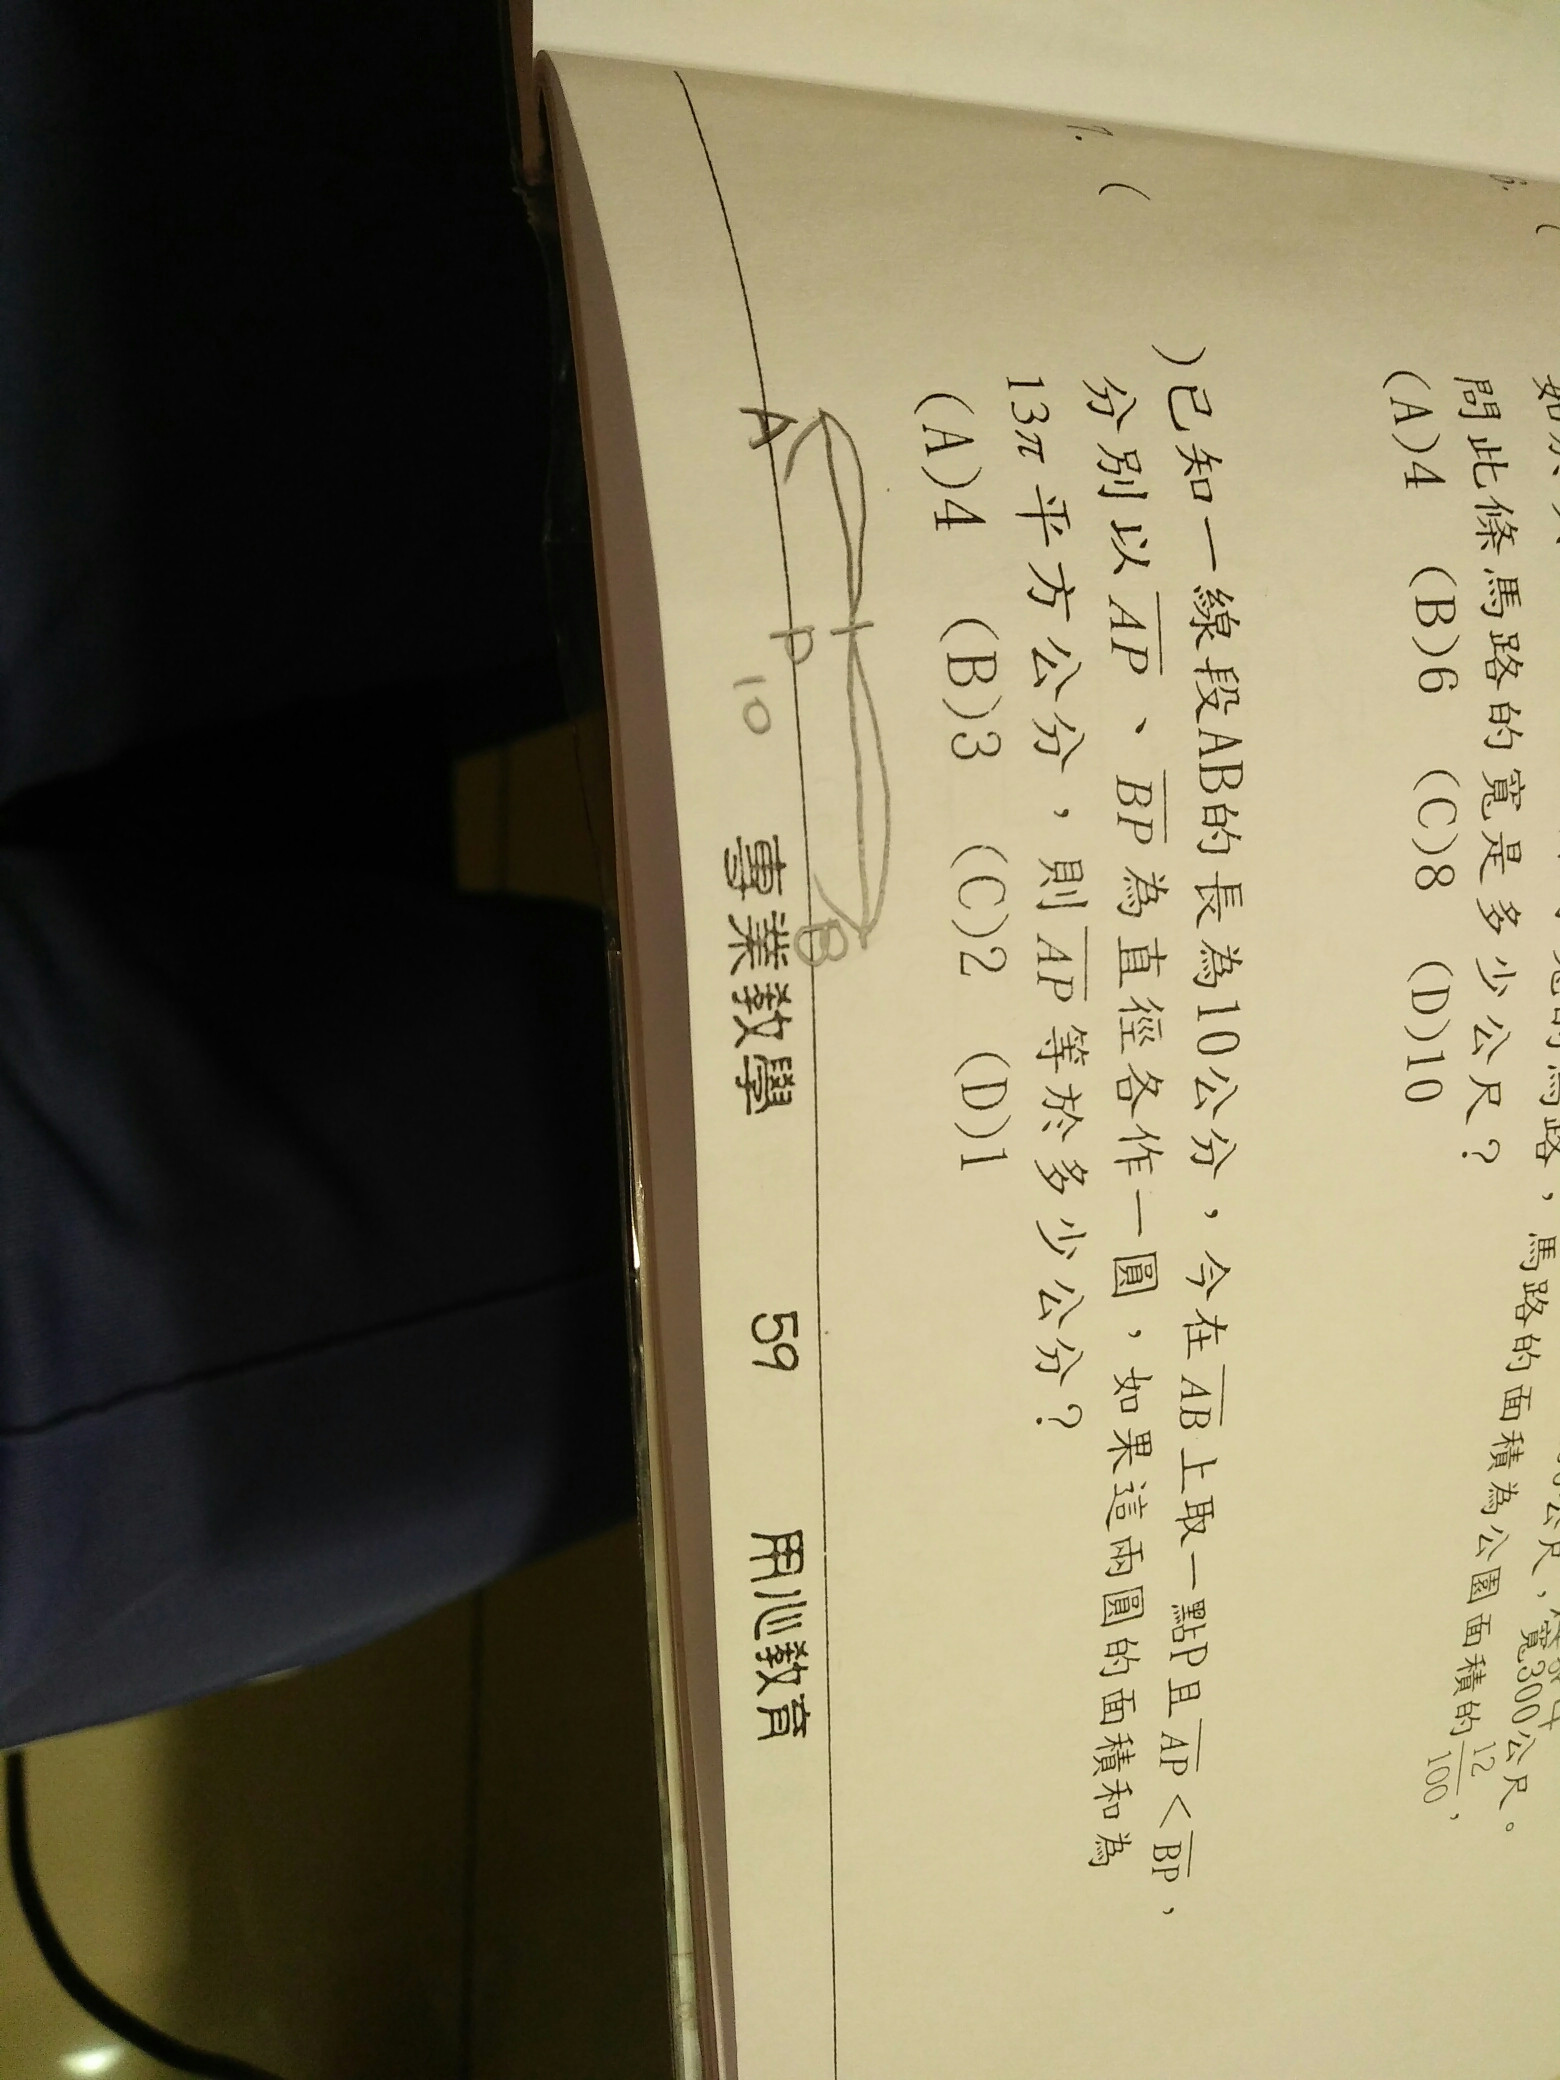 6. (
寬300公尺。
馬路,馬路的面積為公園面積的 12/100,
問此條馬路的寬是多少公尺?
(A)4 (B)6 (C)8 (D)10
7. ( )已知一線段AB的長為10公分,今在AB上取一點P且AP<BP,
分別以AP、BP為直徑各作一圓,如果這兩圓的面積和為
13π平方公分,則AP等於多少公分?
(A)4 (B)3 (C)2 (D)1
A P B
10
專業教學 59 用心教育